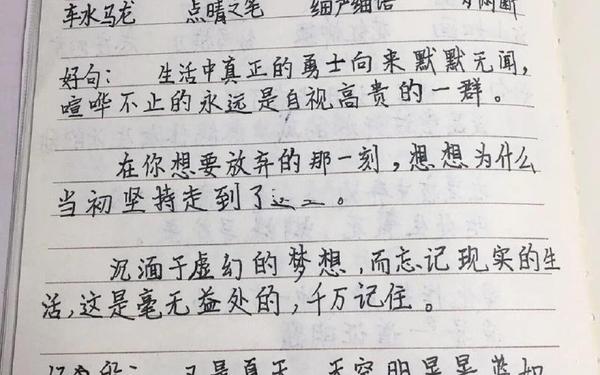 车水马龙 点睛之笔 细声细语
好句： 生活中真正的勇士向来默默无闻，
喧哗不止的永远是自视高贵的一群。
在你想要放弃的那一刻，想想为什么
当初坚持走到了这 。
沉湎于虚幻的梦想，而忘记现实的生
活，这是毫无益处的，千万记住。
好句段： 又是夏天，天空明晃晃